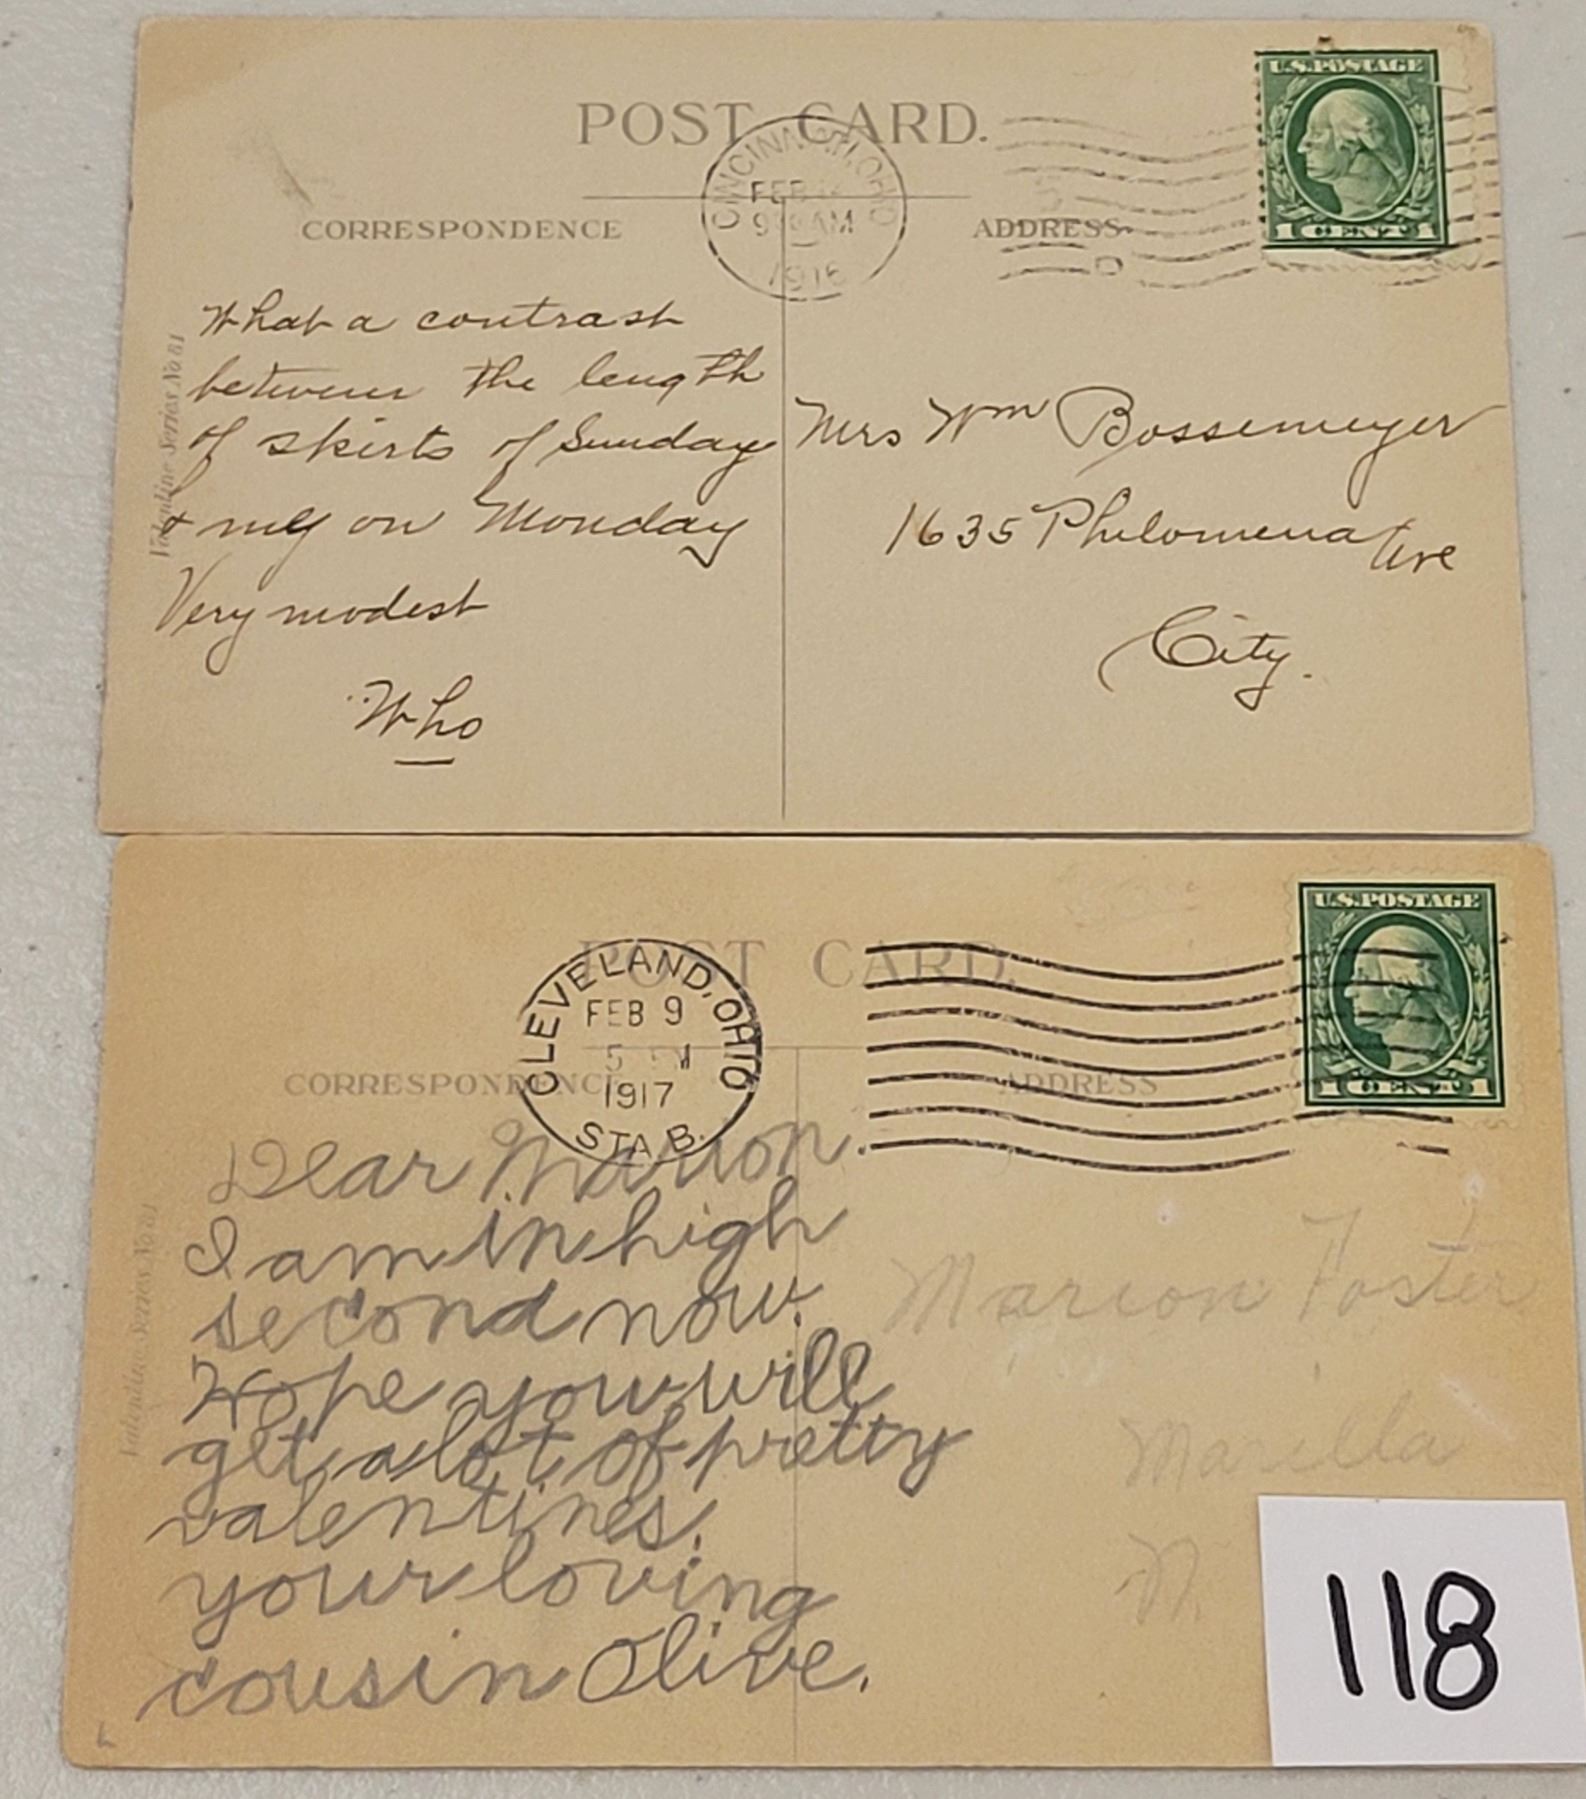 POST CARD.
CINCINNATI, OHIO
FEB
9 AM
1916
U.S.POSTAGE
1 CENT 1
CORRESPONDENCE
ADDRESS
Valentine Series No 81
What a contrast
between the length
of skirts of Sunday
& my on Monday
Very modest
Who
Mrs Wm Bossemeyer
1635 Philomena Ave
City.
POST CARD.
CLEVELAND, OHIO
FEB 9
5 PM
1917
STA B.
U.S.POSTAGE
1 CENT 1
CORRESPONDENCE
ADDRESS
Valentine Series No 81
Dear Marion.
I am in high
second now.
Hope you will
get a lot of pretty
valentines.
your loving
cousin Olive.
Marion Foster
Marilla
N
118